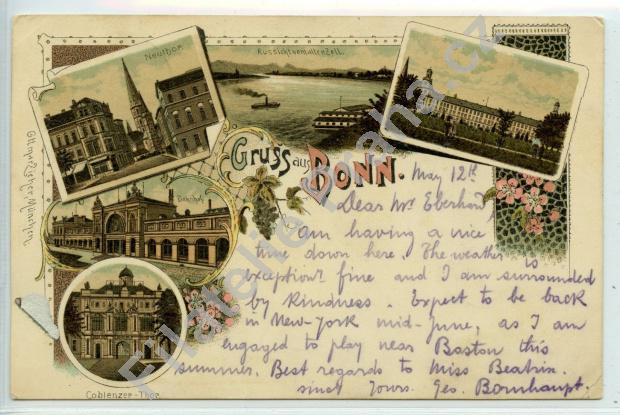 Neuthor.
Aussicht vom alten Zoll.
Gruss aus BONN.
Bahnhof
Coblenzer-Thor
Ottmar Zieher, München
May 12th
Dear Mr Eberhard,
I am having a nice
time down here. The weather is
exception' fine and I am surrounded
by kindness. Expect to be back
in New-York mid-June, as I am
engaged to play near Boston this
summer. Best regards to Miss Beatrix.
sinct Yours. Geo. Bornhaupt.
Filatelie Praha.cz